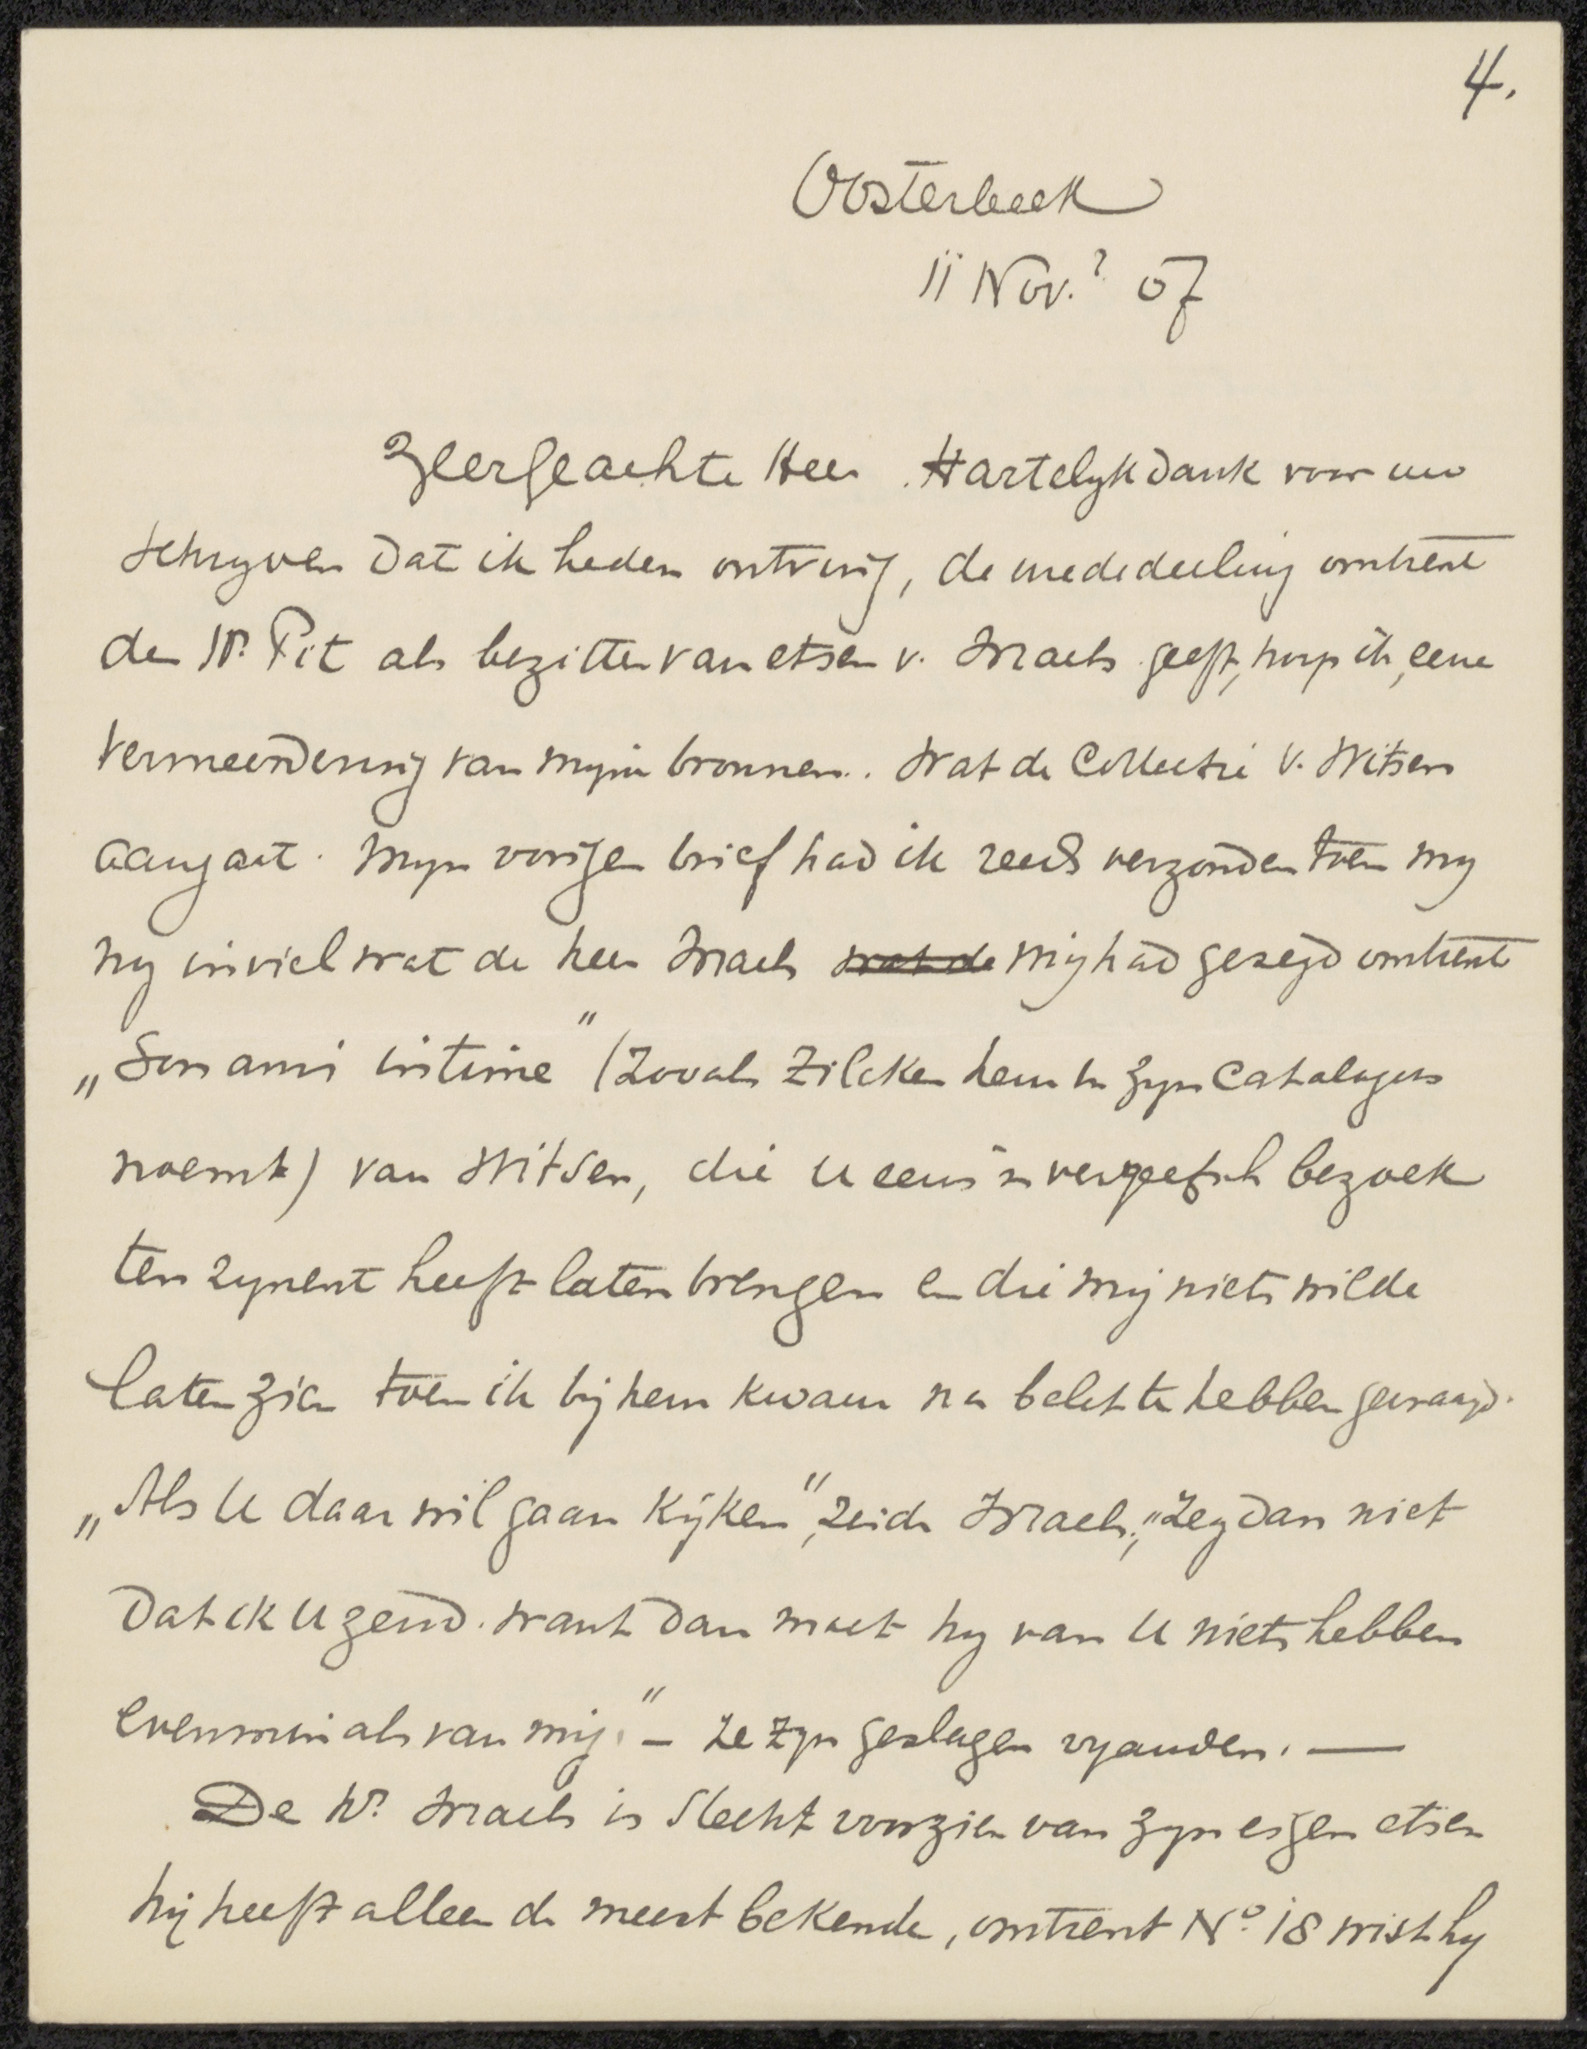 4.
Oosterbeek
11 Nov.? 07
Zeergeachte Heer. Hartelyk dank voor uw
schryven dat ik heden ontving, de mededeeling omtrent
den Hr. Pit als bezitter van etsen v. Israels geeft, hoop ik, eene
vermeerdering van myne bronnen. Wat de Collectie v. Witsen
aangaat. Myn vorigen brief had ik reeds verzonden toen my
nog inviel wat de heer Israels wat de mij had gezegd omtrent
„Son ami intime” (zooals Zilcken hem in zyn Catalogus
noemt) van Witsen, die U eens 'n vergeefsch bezoek
ten zynent heeft laten brengen en die mij niets wilde
laten zien toen ik bij hem kwam na belet te hebben gevraagd.
„Als U daar wil gaan kijken”, zeide Israels, „zeg dan niet
dat ik U zend. want dan moet hy van U niets hebben
evenmin als van mij.” – Ze zyn geslagen vyanden. —
De Hr. Israels is slecht voorzien van zyn eigen etsen
hij heeft alleen de meest bekende, omtrent No. 18 wist hy